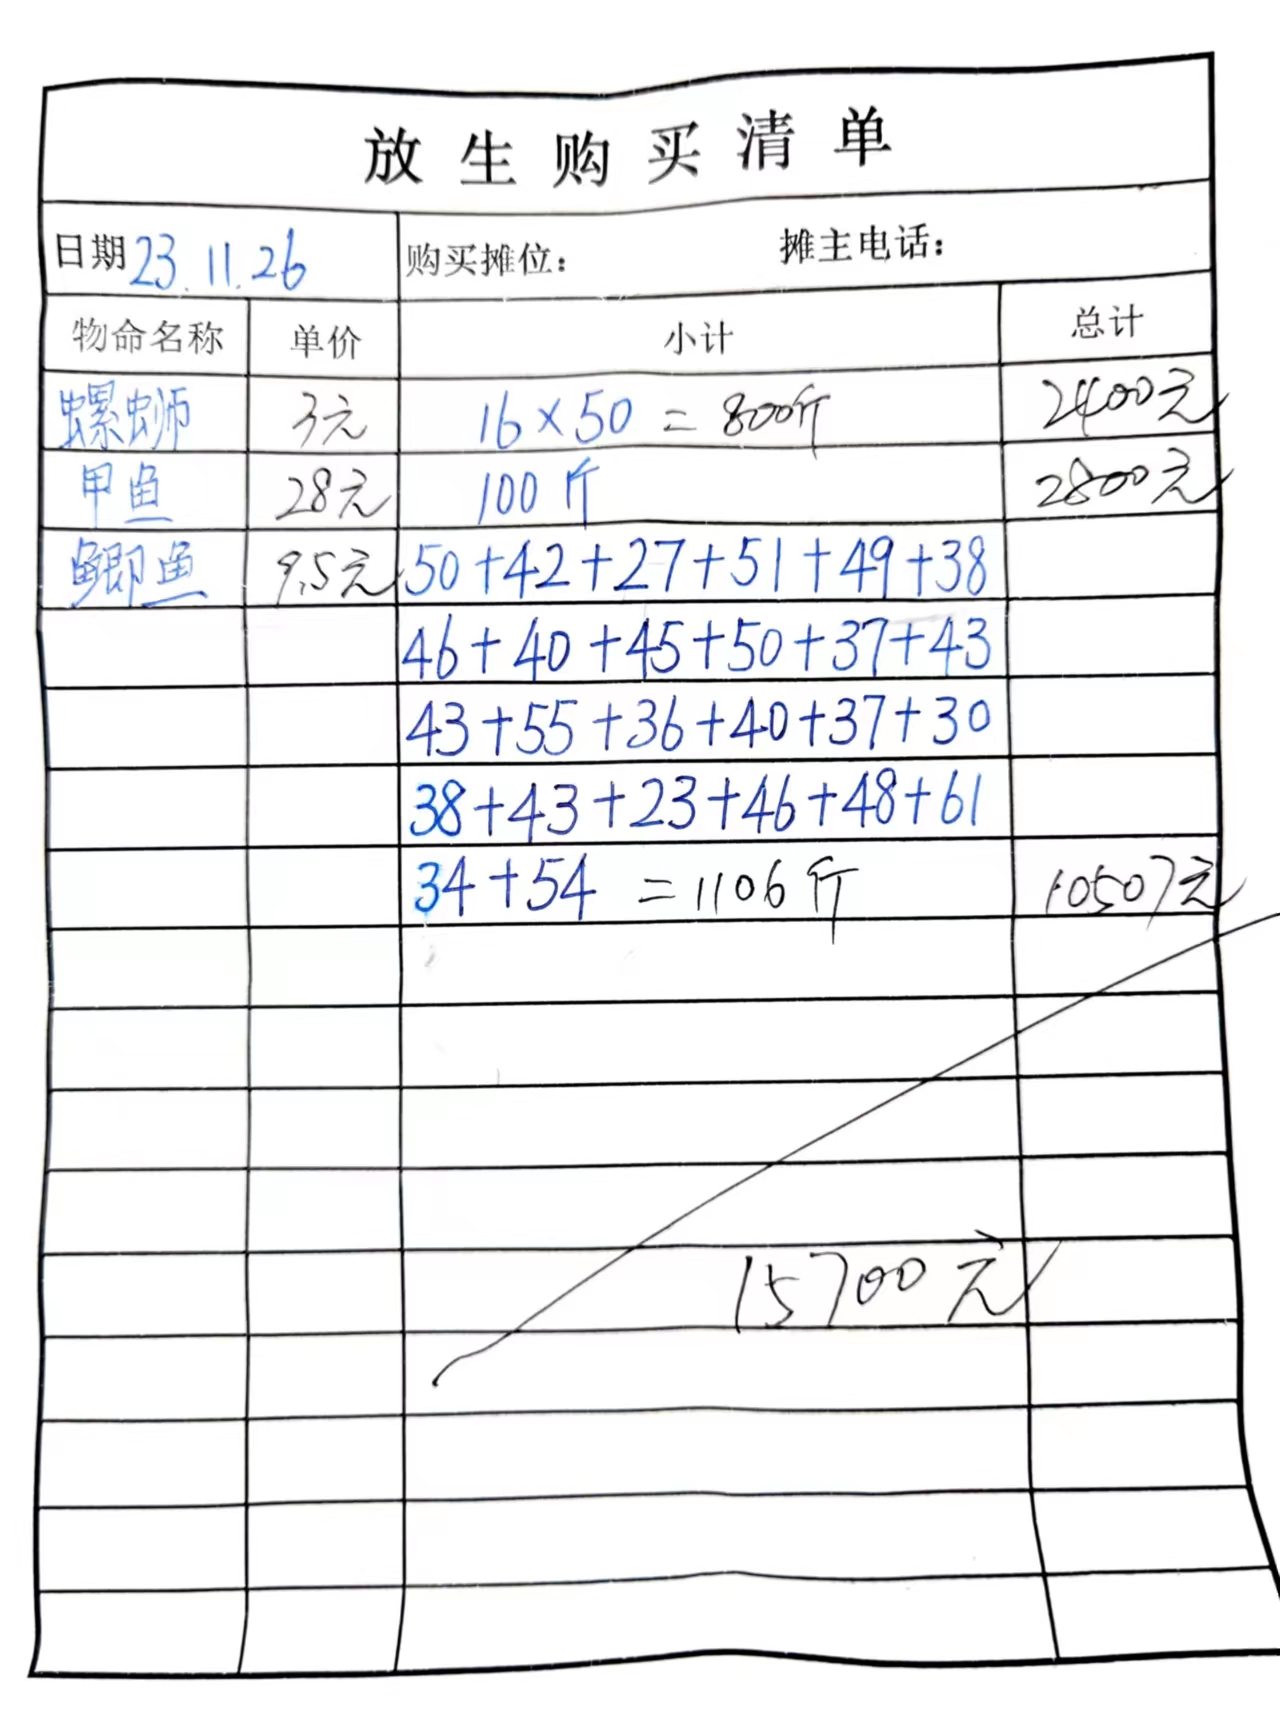 放生购买清单
日期 23.11.26 购买摊位： 摊主电话：
物命名称 单价 小计 总计
螺蛳 3元 16×50 = 800斤 2400元
甲鱼 28元 100斤 2800元
鲫鱼 9.5元 50+42+27+51+49+38
46+40+45+50+37+43
43+55+36+40+37+30
38+43+23+46+48+61
34+54 =1106斤 10507元
15700元